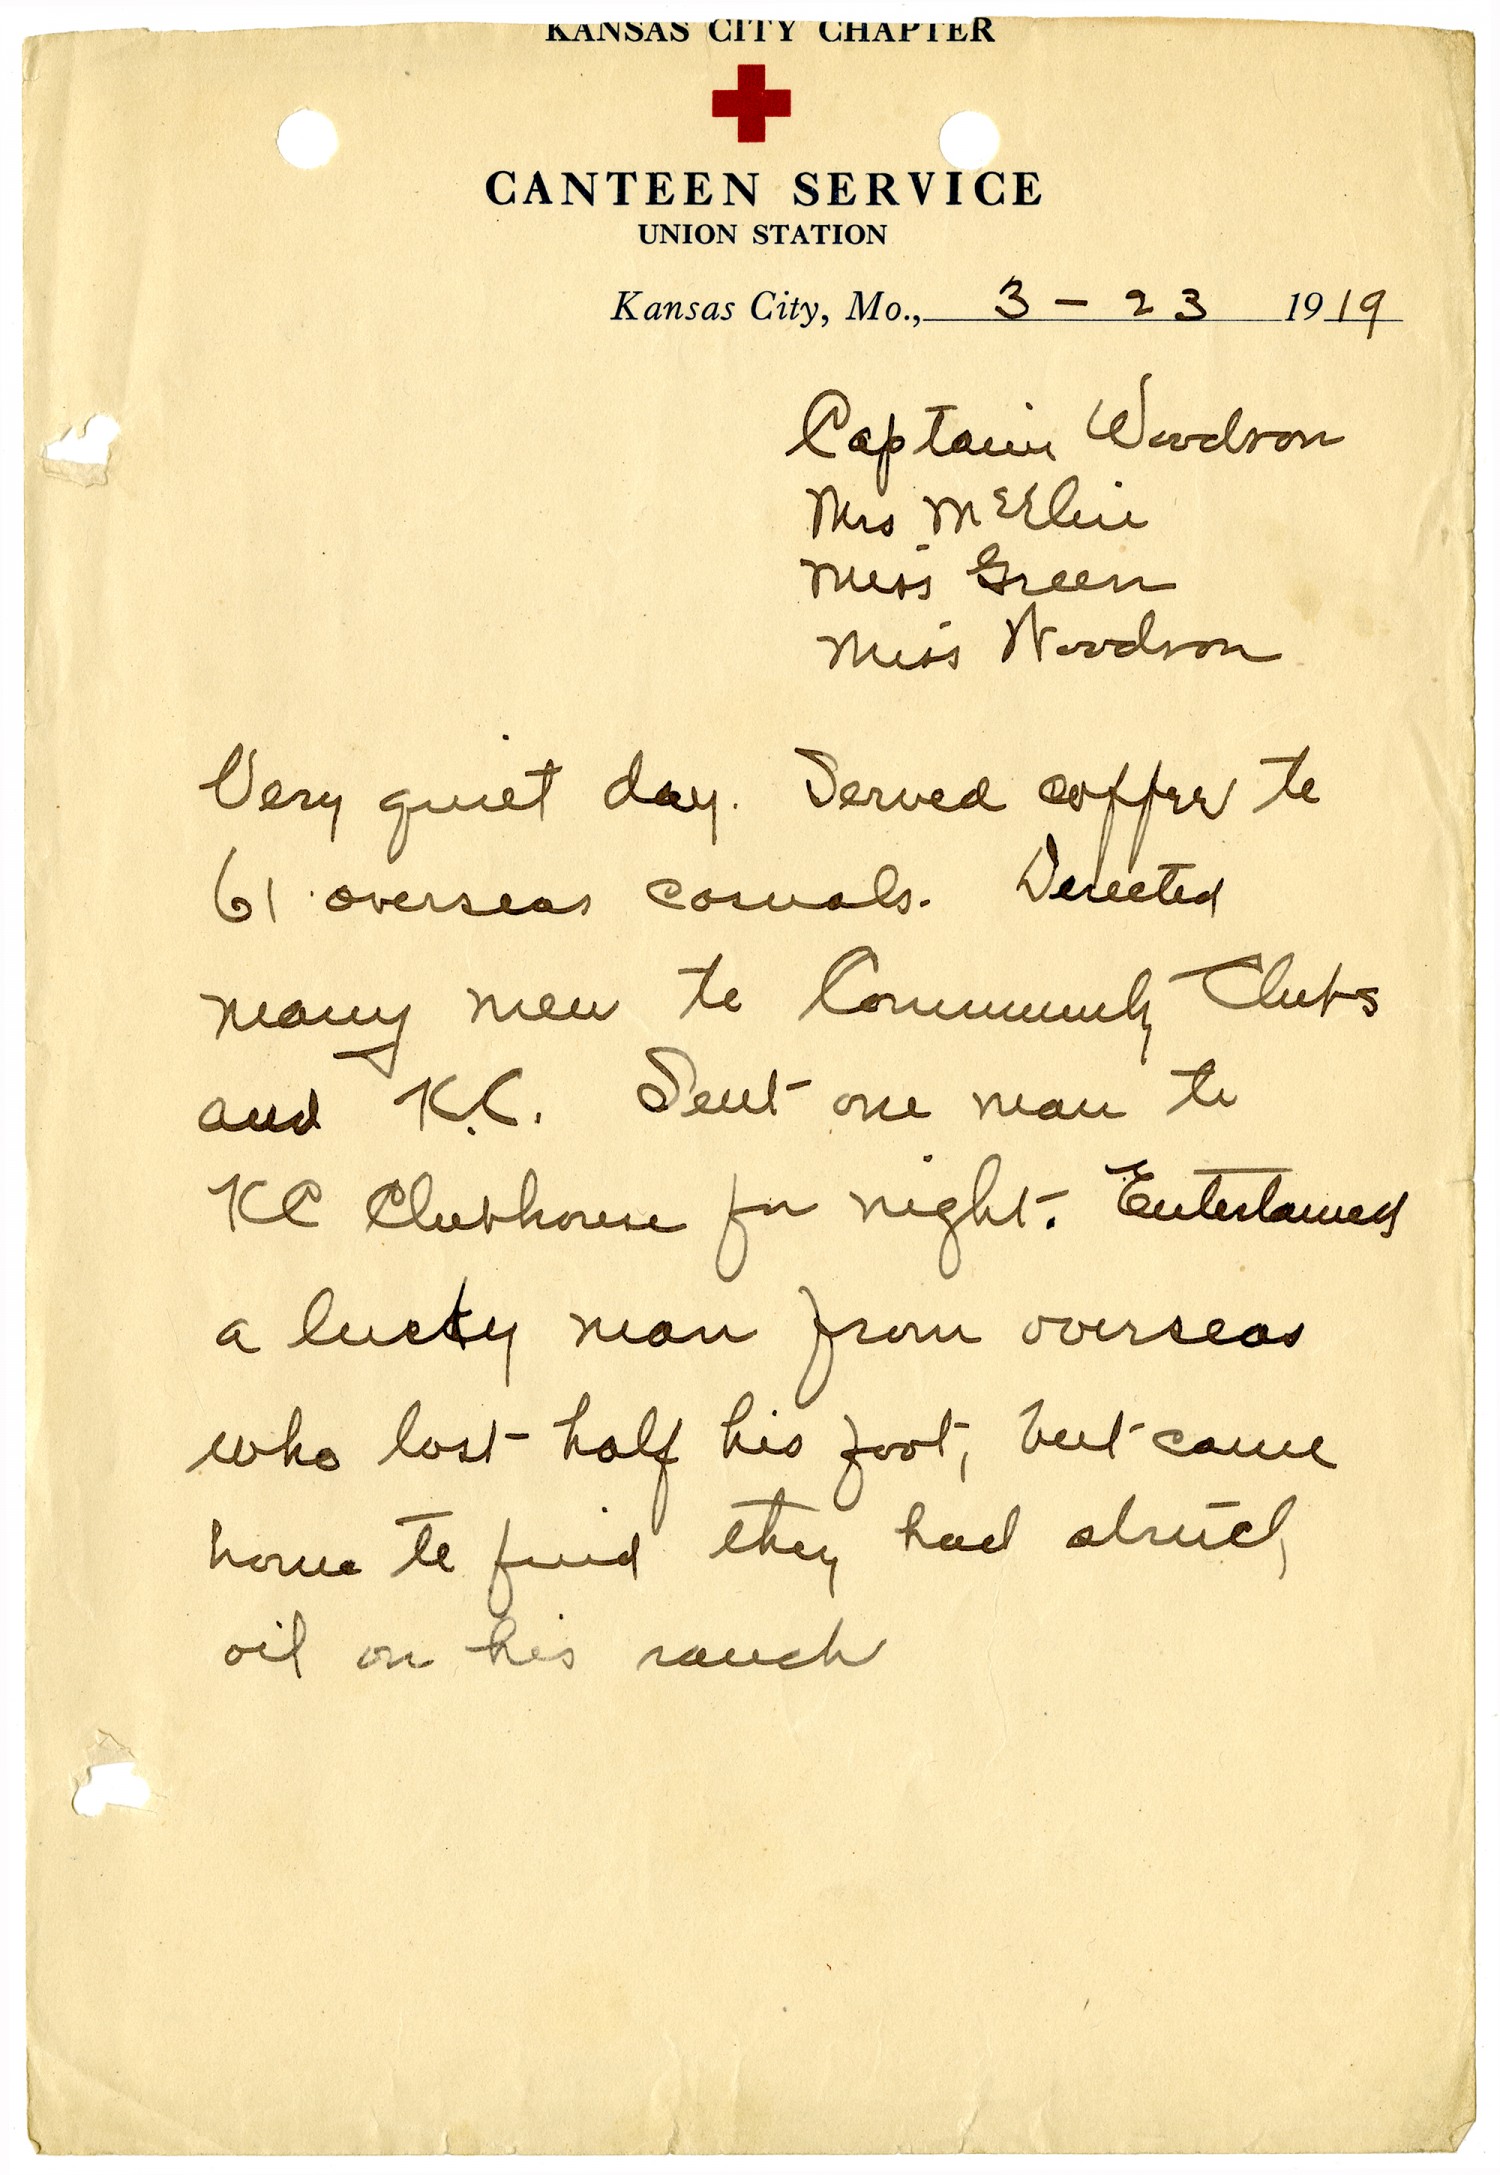 KANSAS CITY CHAPTER
CANTEEN SERVICE
UNION STATION
Kansas City, Mo., 3 - 23 1919
Captain Woodson
Mrs
Miss Green
Miss Woodson
Very quiet day. Served coffee to
61 overseas casuals. Directed
many men to Community Clubs
and K.C. Sent one man to
KC Clubhouse for night. Entertained
a lucky man from overseas
who lost half his foot, but came
home to find they had struck
oil on his ranch